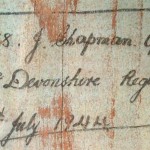 8. J. Chapman
Devonshire Reg
July 1944